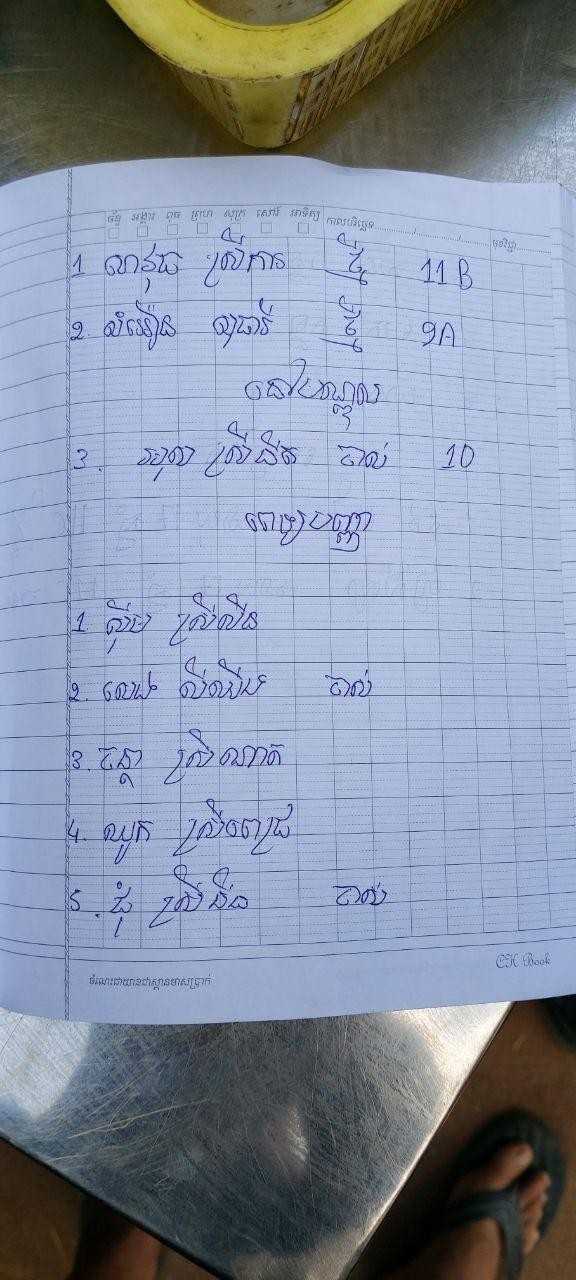 ច័ន្ទ អង្គារ ពុធ ព្រហ សុក្រ សៅរ៍ អាទិត្យ កាលបរិច្ឆេទ............/............/............ មុខវិជ្ជា
1 សាវុធ ស្រីការ ថ្មី 11B
2. សំអឿន សុធារី ថ្មី 9A
នៅបណ្ដុល
3. អុល ស្រីនិត ចាស់ 10
ពេជ្របញ្ញា
1 ស៊ីម ស្រីលីន
2. សេង លីឈីង ចាស់
3. ចន្ថា ស្រីណាត
4. ឈូក ស្រីពេជ្រ
5. ជុំ ស្រីនិច ចាស់
ចំណេះជាយានជាស្ពានមាសប្រាក់
CH Book